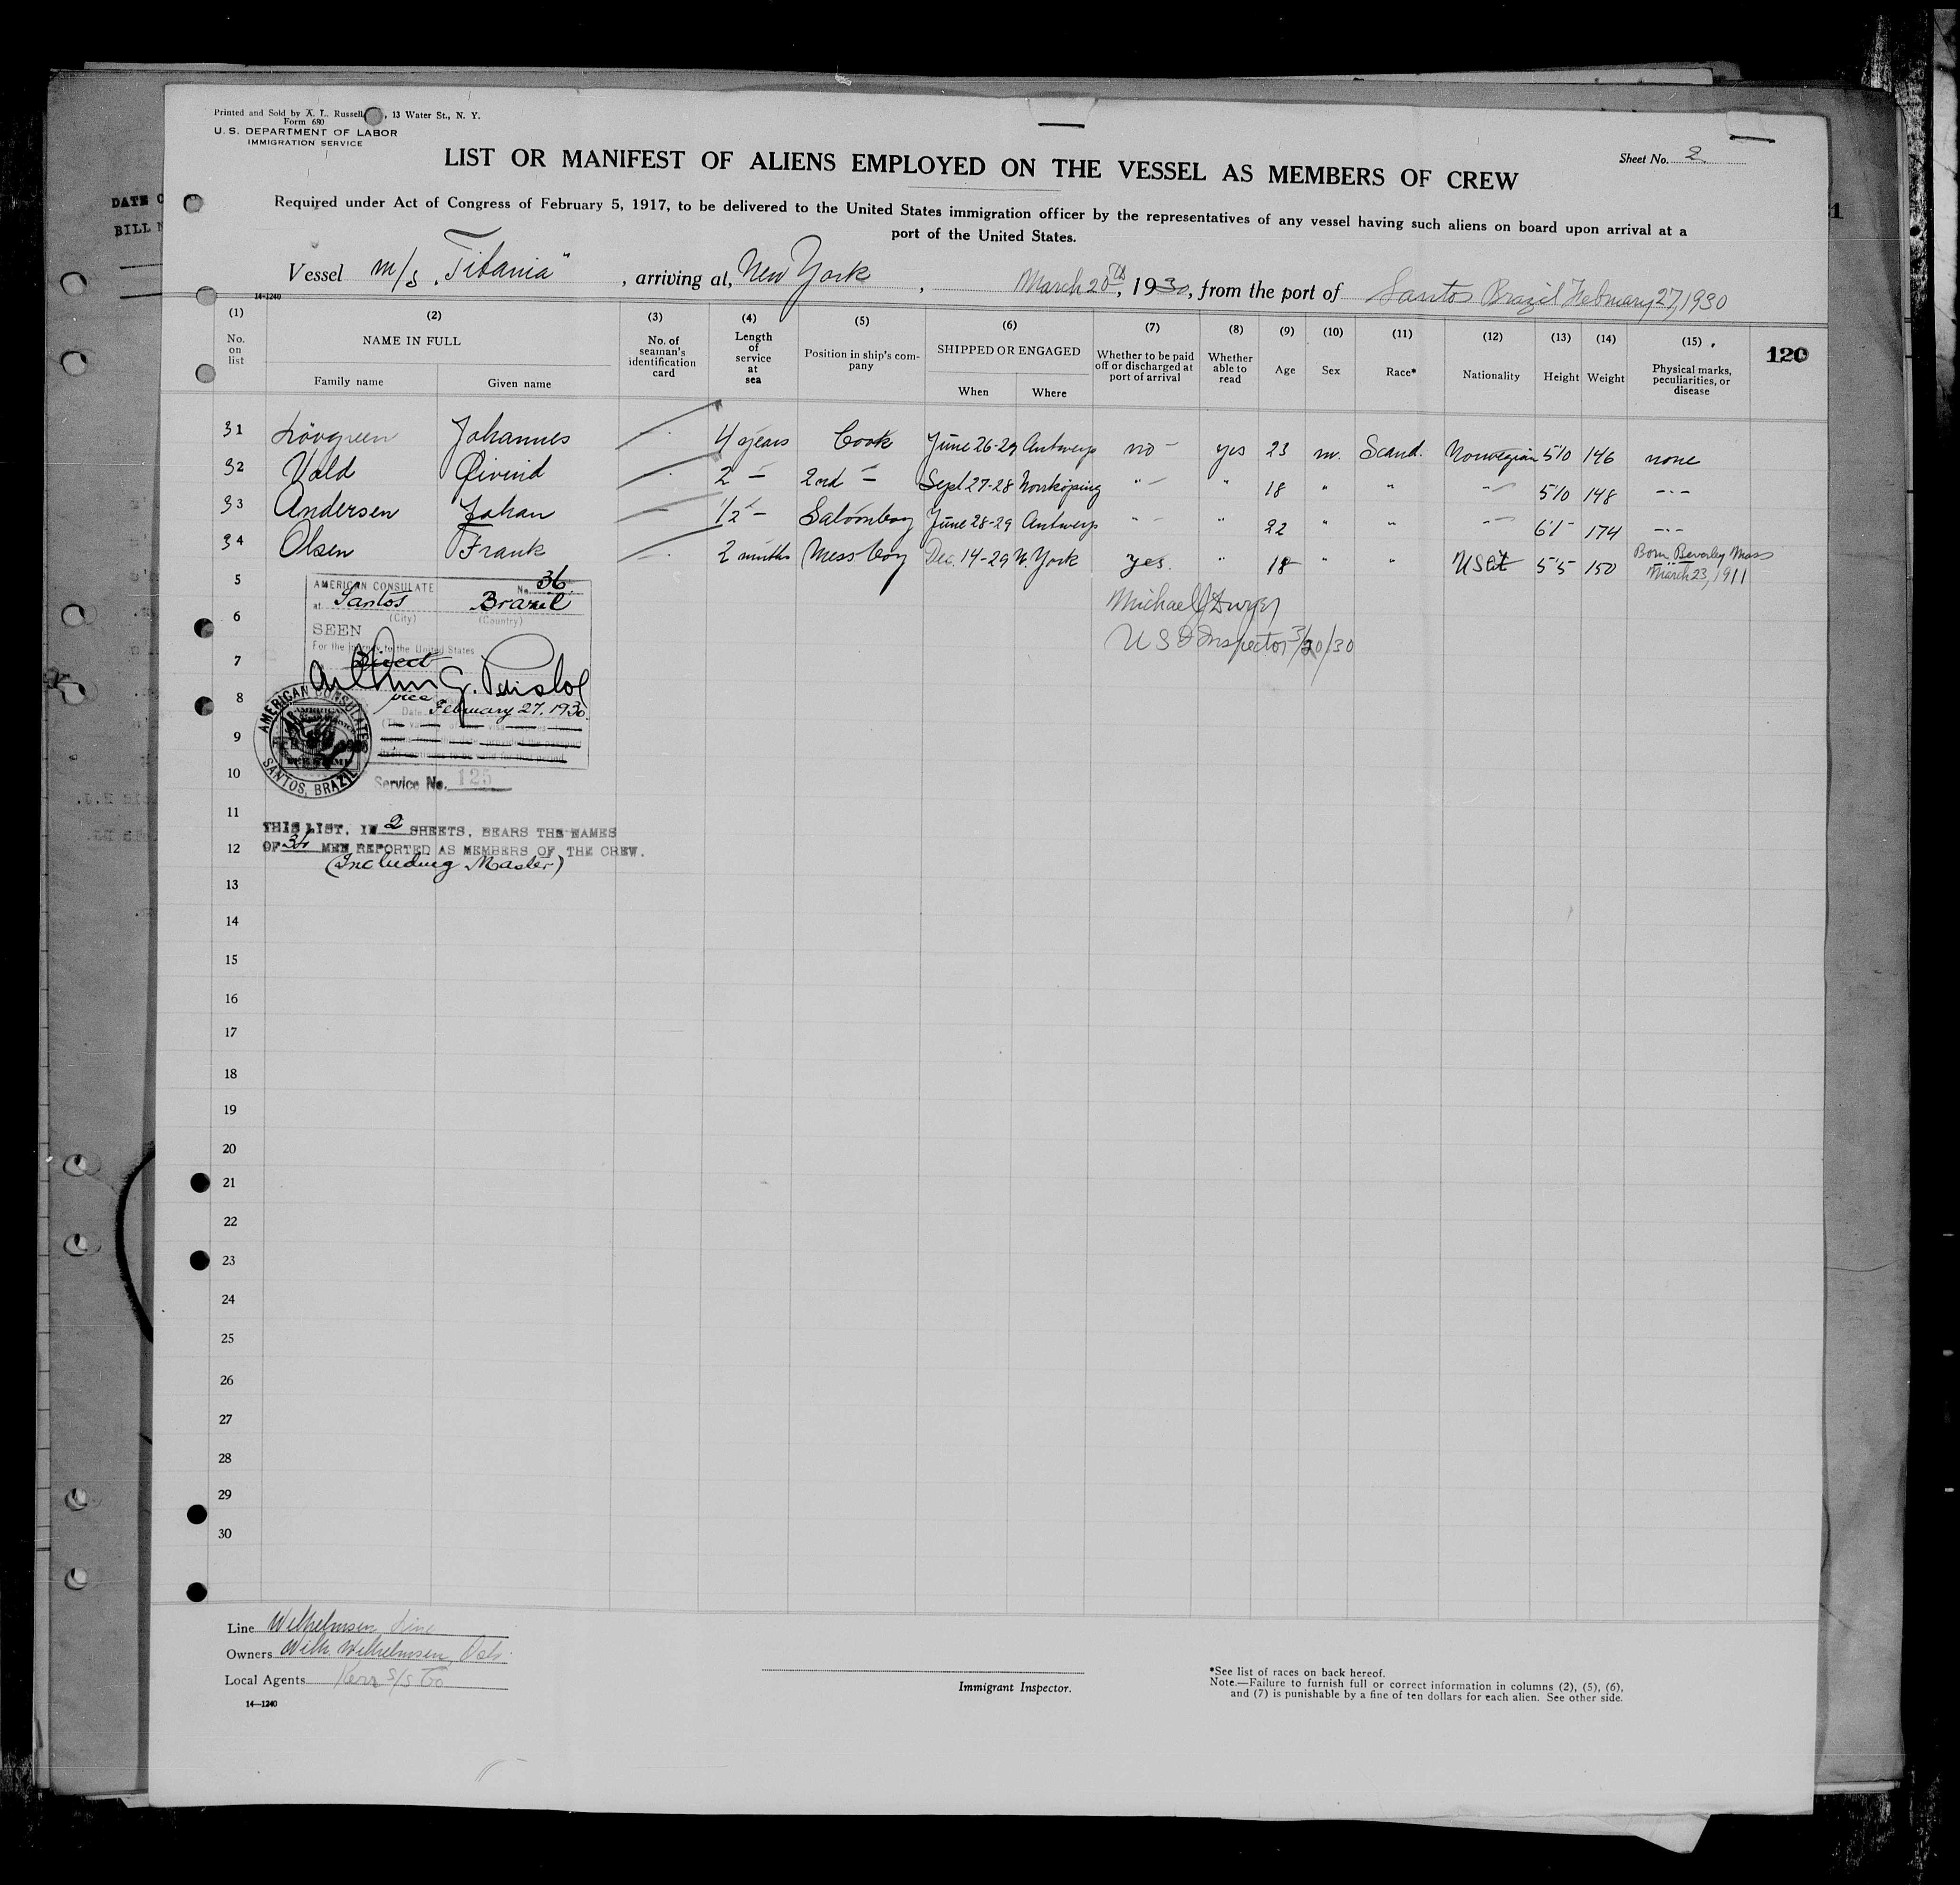 Printed and Sold by A. L. Russell, 13 Water St., N. Y.
Form 680
U. S. DEPARTMENT OF LABOR
IMMIGRATION SERVICE
LIST OR MANIFEST OF ALIENS EMPLOYED ON THE VESSEL AS MEMBERS OF CREW
Sheet No. 2
Required under Act of Congress of February 5, 1917, to be delivered to the United States immigration officer by the representatives of any vessel having such aliens on board upon arrival at a
port of the United States.
Vessel m/s "Titania", arriving at, New York, March 20th, 1930, from the port of Santos Brazil February 27, 1930
14-1240
(1) (2) (3) (4) (5) (6) (7) (8) (9) (10) (11) (12) (13) (14) (15)
No. on list
NAME IN FULL
Family name Given name
No. of seaman's identification card
Length of service at sea
Position in ship's company
SHIPPED OR ENGAGED
When Where
Whether to be paid off or discharged at port of arrival
Whether able to read
Age
Sex
Race*
Nationality
Height
Weight
Physical marks, peculiarities, or disease
120
31 Lövgreen Johannes - 4 years Cook June 26-29 Antwerp no - yes 23 m. Scand. Norwegian 5'10 146 none
32 Vold Øivind - 2 - 2nd - Sept 27-28 Norrköping " - " 18 " " " - 5'10 148 -"-
33 Andersen Johan - 1/2 - Saloonboy June 28-29 Antwerp " - " 22 " " " - 6'1 - 174 -"-
34 Olsen Frank - 2 months Messboy Dec. 14-29 N. York yes. " 18 " " USA 5'5 150 Born Beverly Mass March 23, 1911
5
AMERICAN CONSULATE No. 36
at Santos Brazil
(City) (Country)
6
SEEN
For the journey to the United States
Direct
7
Arthur G.
8
vice
Date February 27, 1930.
9
AMERICAN CONSULATE
SANTOS, BRAZIL
10
Service No. 125
Michael J Dwyer
US Inspector 3/20/30
11
THIS LIST, IN 2 SHEETS, BEARS THE NAMES
12
OF 34 MEN REPORTED AS MEMBERS OF THE CREW.
(Including Master)
13
14
15
16
17
18
19
20
21
22
23
24
25
26
27
28
29
30
Line Wilhelmsen Line
Owners Wilh. Wilhelmsen, Oslo.
Local Agents Kerr S/S Co
14-1240
Immigrant Inspector.
*See list of races on back hereof.
Note.—Failure to furnish full or correct information in columns (2), (5), (6),
and (7) is punishable by a fine of ten dollars for each alien. See other side.
DATE
BILL